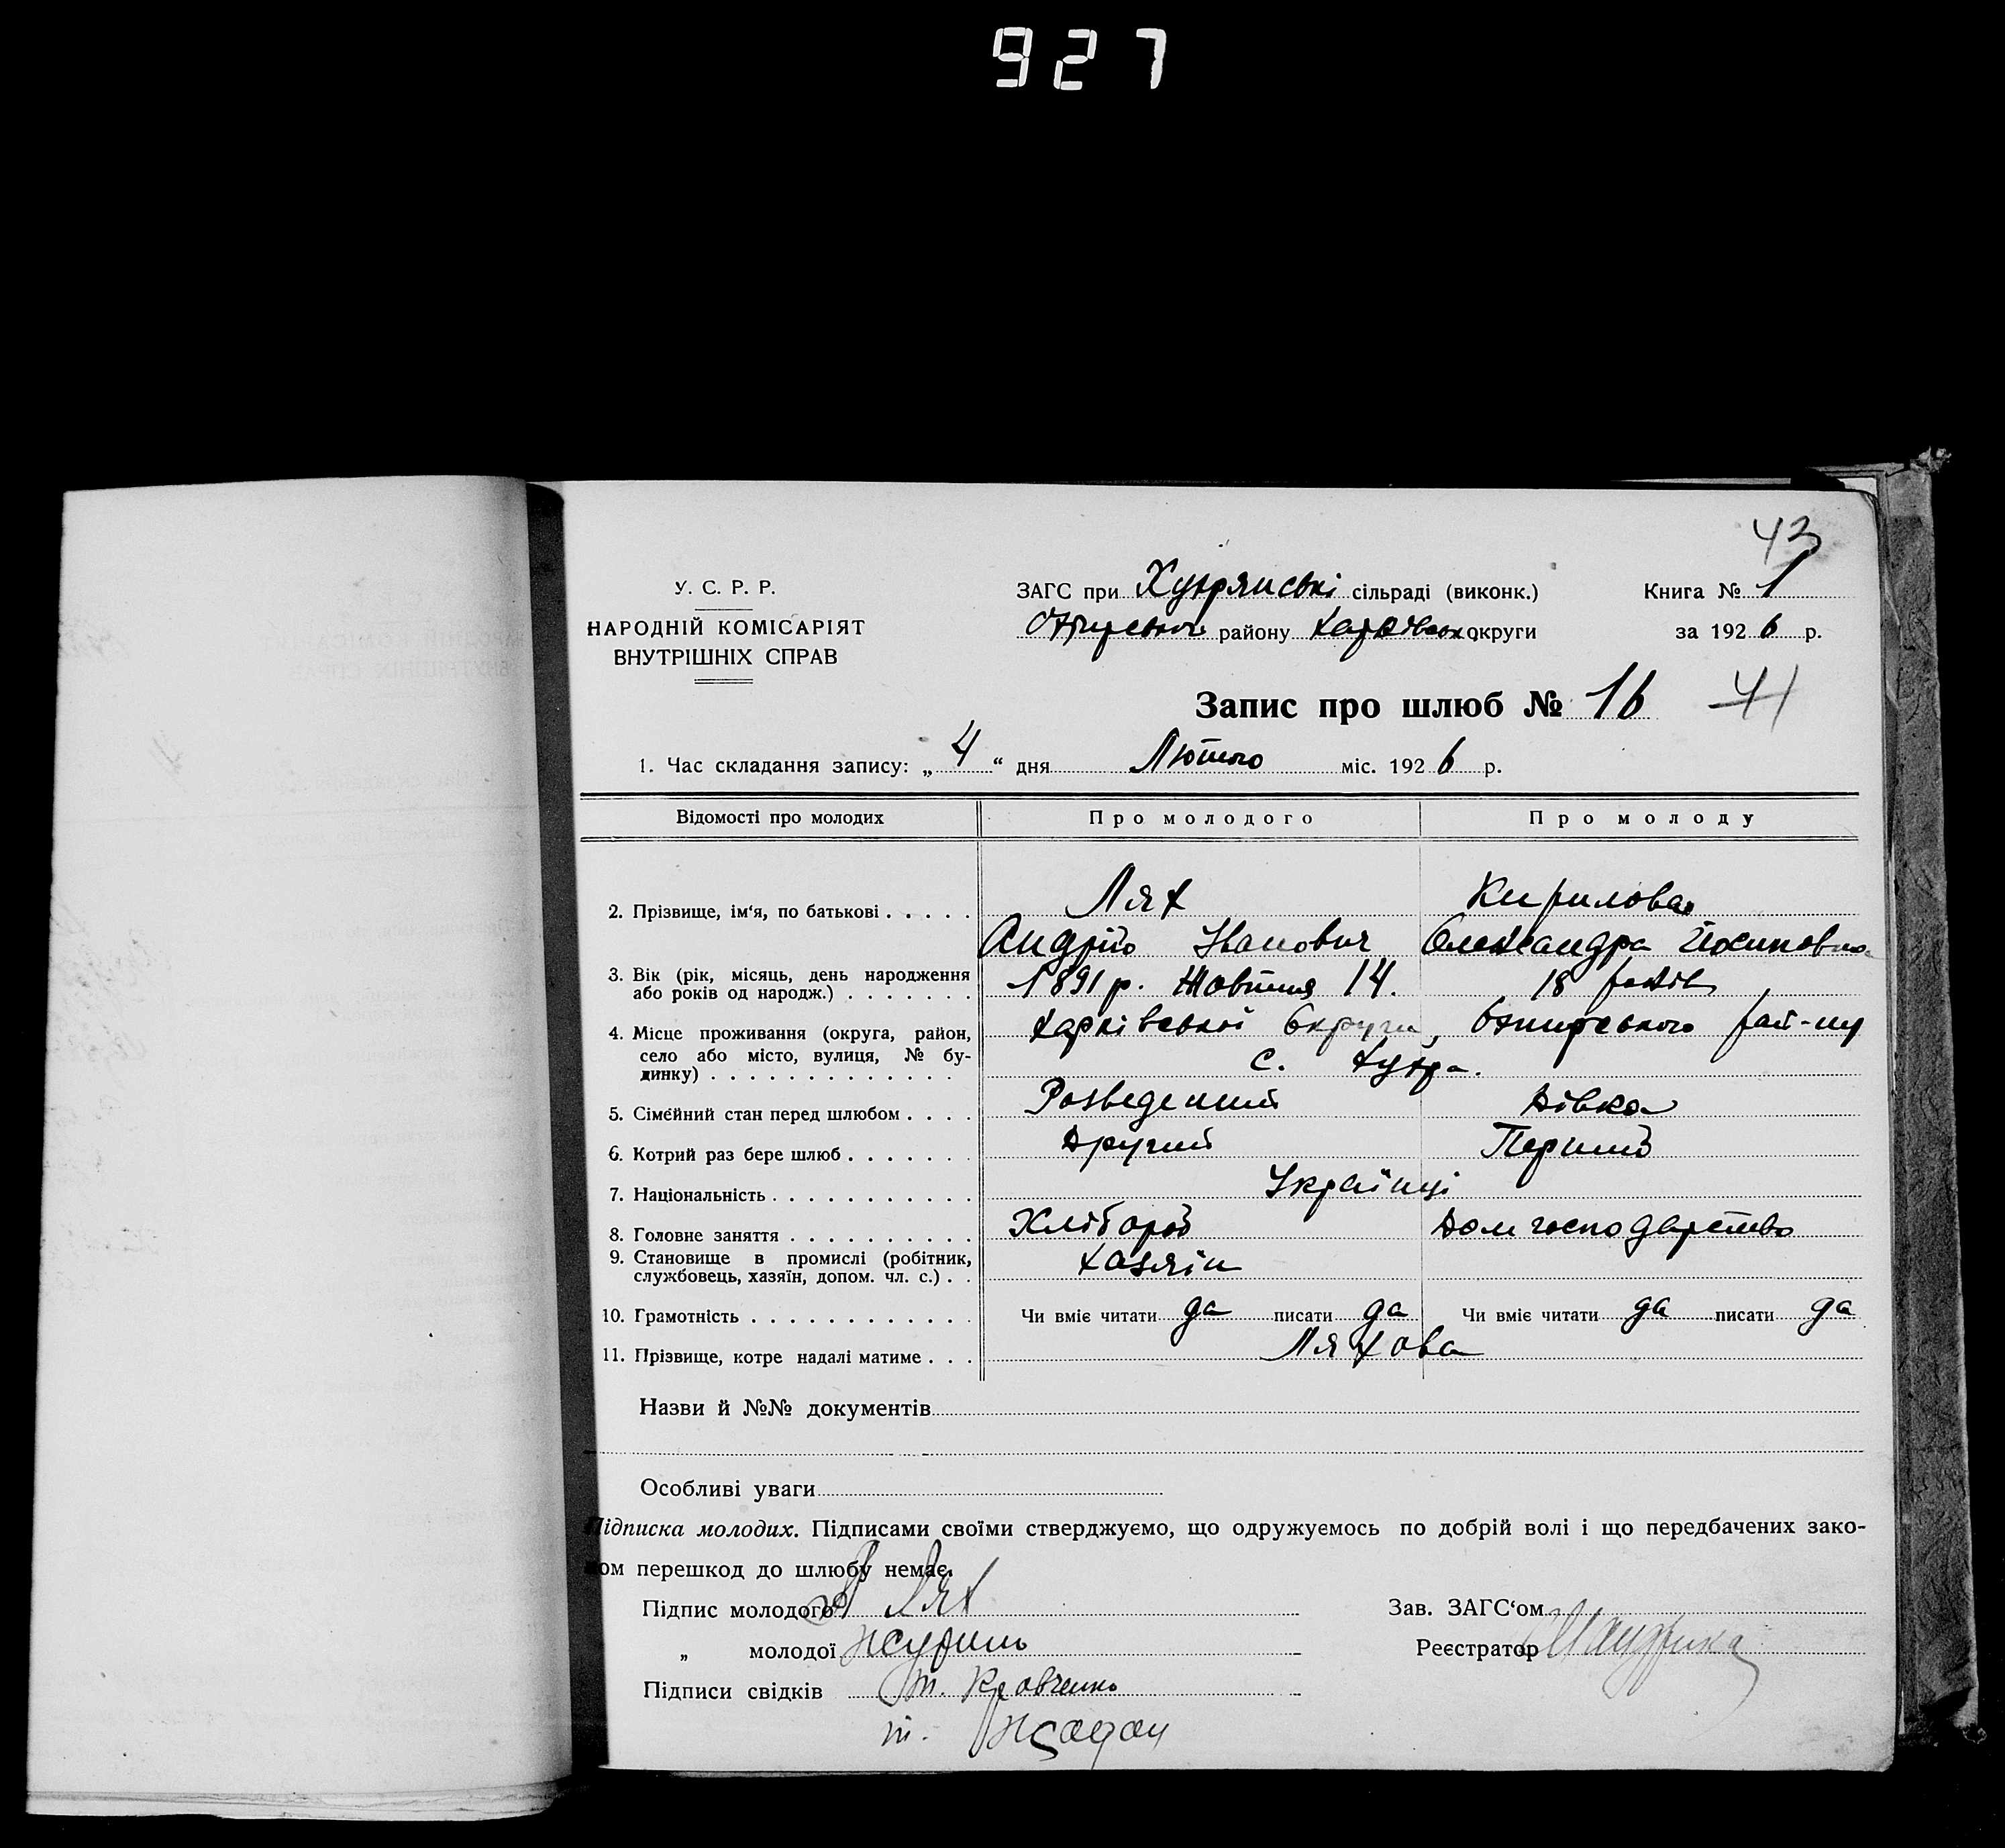 927
43
У. С. Р. Р.
НАРОДНІЙ КОМІСАРІЯТ
ВНУТРІШНІХ СПРАВ
ЗАГС при сільраді (виконк.)
району Харківськ округи
Книга № 1
за 1926 р.
Запис про шлюб № 16 41
1. Час складання запису: „4“ дня Лютого міс. 1926 р.
Відомості про молодих Про молодого Про молоду
2. Прізвище, ім‘я, по батькові Лях Кирилова
Андрій Іванович Олександра
3. Вік (рік, місяць, день народження
або років од народж.) 1891 р. Жовтня 14. 18 років
4. Місце проживання (округа, район,
село або місто, вулиця, № бу-
динку)
Харківської Округи, рай-ну
с.
5. Сімейний стан перед шлюбом Розведений Дівка
6. Котрий раз бере шлюб Другий Перший
7. Національність Українці
8. Головне заняття Хлібороб Дом господарство
9. Становище в промислі (робітник,
службовець, хазяїн, допом. чл. с.) Хазяїн
10. Грамотність Чи вміє читати да писати да Чи вміє читати да писати да
11. Прізвище, котре надалі матиме Ляхова
Назви й №№ документів
Особливі уваги
Підписка молодих. Підписами своїми стверджуємо, що одружуємось по добрій волі і що передбачених зако-
ном перешкод до шлюбу немає.
Підпис молодого Лях
„ молодої
Підписи свідків Кравченко
Зав. ЗАГС‘ом
Реєстратор